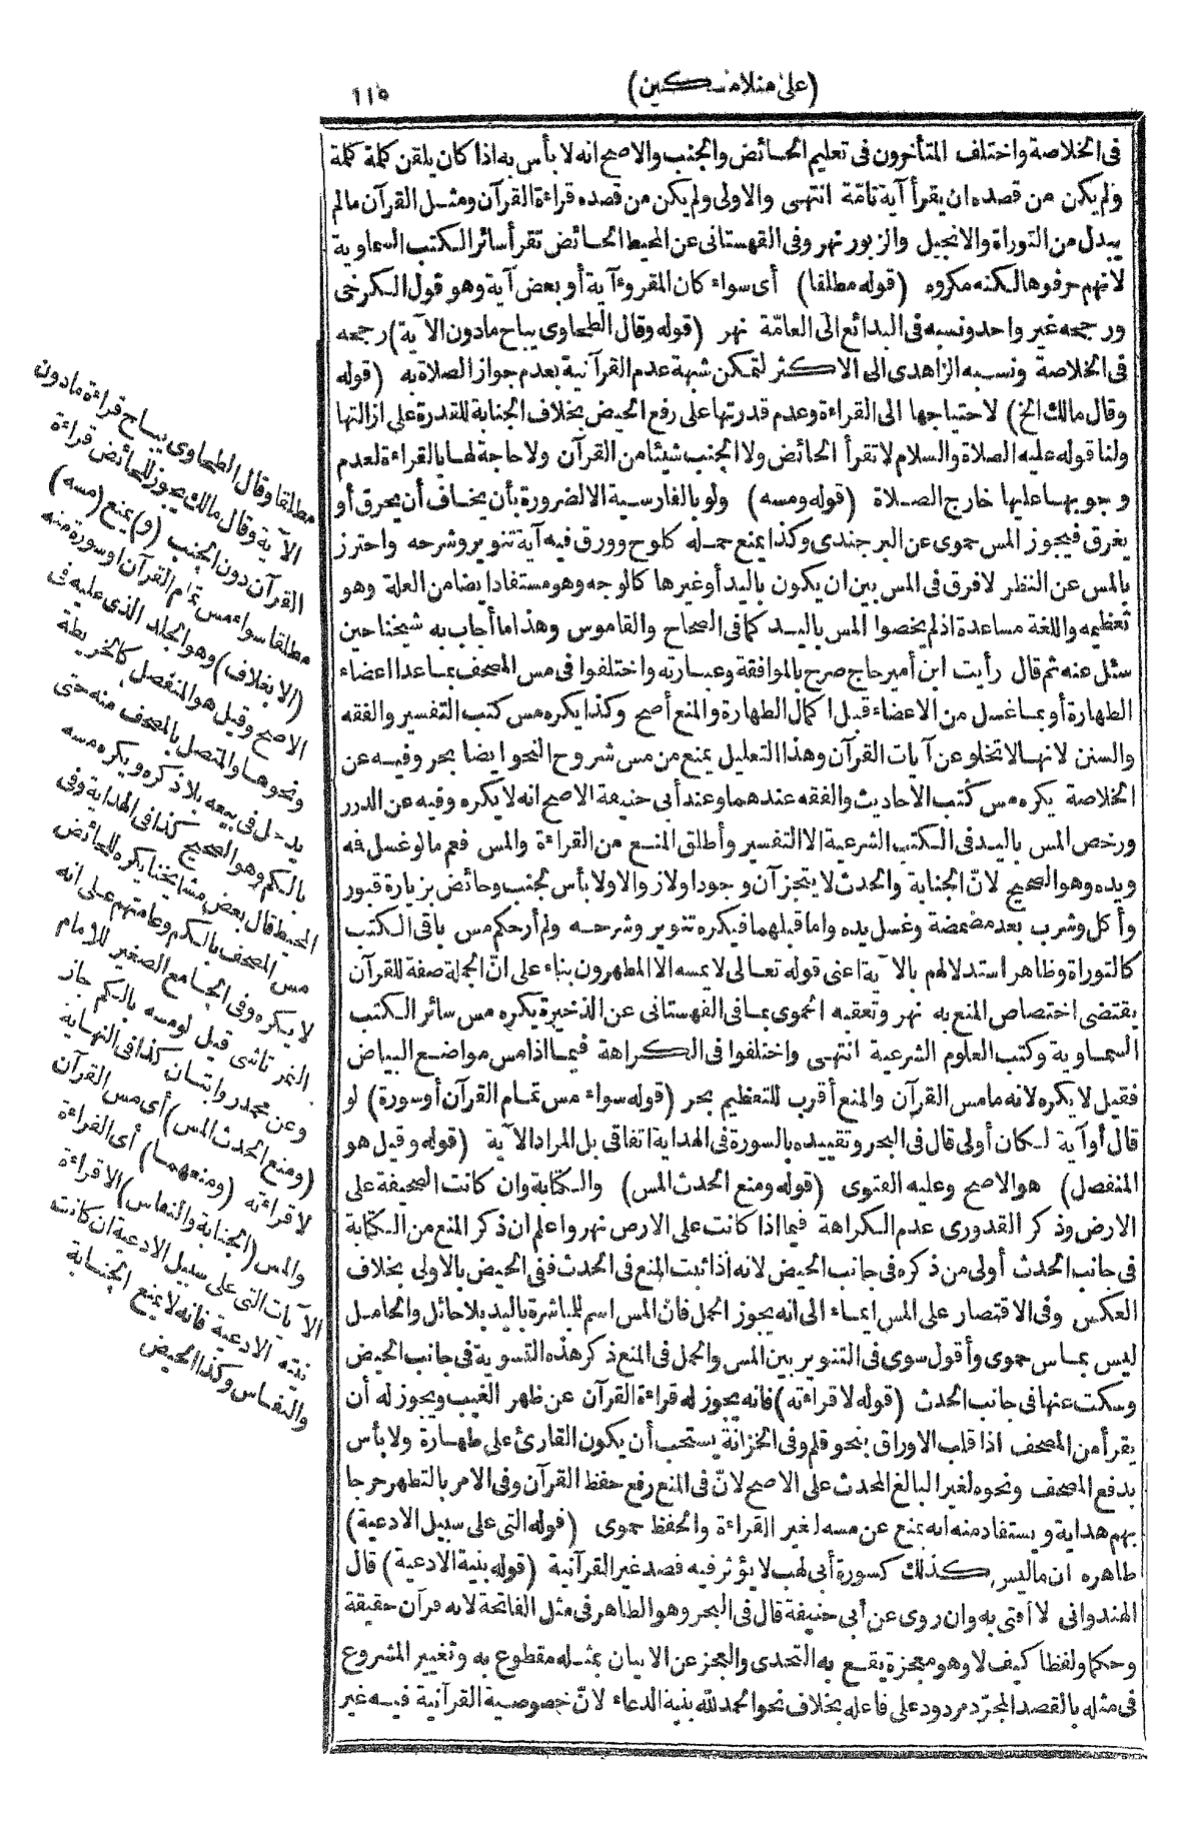 (على منلا مسكين)
١١٥
فى الخلاصة واختلف المتأخرون فى تعليم الحائض والجنب والاصح انه لا بأس به اذا كان يلقن كلمة كلمة
ولم يكن من قصده ان يقرأ آية تامّة انتهى والاولى ولم يكن من قصده قراءة القرآن ومثل القرآن مالم
يبدل من التوراة والانجيل والزبور نهر وفى القهستانى عن المحيط الحائض تقرأ سائر الكتب السماوية
لانهم حرفوها لكنه مكروه (قوله مطلقا) أى سواء كان المقروء آية أو بعض آية وهو قول الكرخى
ورجحه غير واحد ونسبه فى البدائع الى العامّة نهر (قوله وقال الطحاوى يباح مادون الآية) رجحه
فى الخلاصة ونسبه الزاهدى الى الاكثر لتمكن شبهة عدم القرآنية بعدم جواز الصلاة به (قوله
وقال مالك الخ) لاحتياجها الى القراءة وعدم قدرتها على رفع الحيض بخلاف الجنابة للقدرة على ازالتها
ولنا قوله عليه الصلاة والسلام لا تقرأ الحائض ولا الجنب شيئا من القرآن ولا حاجة لها بالقراءة لعدم
وجوبها عليها خارج الصلاة (قوله ومسه) ولو بالفارسية الا لضرورة بأن يخاف أن يحرق أو
يغرق فيجوز المس حموى عن البرجندى وكذا يمنع حمله كلوح وورق فيه آية تنوير وشرحه واحترز
بالمس عن النظر لا فرق فى المس بين ان يكون باليد أو غيرها كالوجه وهو مستفاد ايضا من العلة وهو
تعظيمه واللغة مساعدة اذ لم يخصوا المس باليد كما فى الصحاح والقاموس وهذا ما أجاب به شيخنا حين
سئل عنه ثم قال رأيت ابن أمير حاج صرح بالموافقة وعبارته واختلفوا فى مس المصحف بما عدا اعضاء
الطهارة أو بما غسل من الاعضاء قبل اكمال الطهارة والمنع أصح وكذا يكره مس كتب التفسير والفقه
والسنن لانها لا تخلو عن آيات القرآن وهذا التعليل يمنع من مس شروح النحو ايضا بحر وفيه عن
الخلاصة يكره مس كتب الاحاديث والفقه عندهما وعند أبى حنيفة الاصح انه لا يكره وفيه عن الدرر
ورخص المس باليد فى الكتب الشرعية الا التفسير وأطلق المنع من القراءة والمس فعم مالو غسل فه
ويده وهو الصحيح لانّ الجنابة والحدث لا يتجزآن وجودا ولا زوالا ولا بأس لجنب وحائض بزيارة قبور
وأكل وشرب بعد مضمضة وغسل يده واما قبلهما فيكره تنوير وشرحه ولم أر حكم مس باقى الكتب
كالتوراة وظاهر استدلالهم بالآية اعنى قوله تعالى لا يمسه الا المطهرون بناء على انّ الجملة صفة للقرآن
يقتضى اختصاص المنع به نهر وتعقبه الحموى بما فى القهستانى عن الذخيرة يكره مس سائر الكتب
السماوية وكتب العلوم الشرعية انتهى واختلفوا فى الكراهة فيما اذا مس مواضع البياض
فقيل لا يكره لانه ما مس القرآن والمنع أقرب للتعظيم بحر (قوله سواء مس تمام القرآن أو سورة) لو
قال أو آية لكان أولى قال فى البحر وتقييده بالسورة فى الهداية اتفاقى بل المراد الآية (قوله وقيل هو
المنفصل) هو الاصح وعليه الفتوى (قوله ومنع الحدث المس) والكتابة وان كانت الصحيفة على
الارض وذكر القدورى عدم الكراهة فيما اذا كانت على الارض نهر واعلم ان ذكر المنع من الكتابة
فى جانب الحدث أولى من ذكره فى جانب الحيض لانه اذا ثبت المنع فى الحدث ففى الحيض بالاولى بخلاف
العكس وفى الاقتصار على المس ايماء الى انه يجوز الحمل فانّ المس اسم للمباشرة باليد بلا حائل والحامل
ليس بماس حموى وأقول سوى فى التنوير بين المس والحمل فى المنع ذكر هذه التسوية فى جانب الحيض
وسكت عنها فى جانب الحدث (قوله لا قراءته) فانه يجوز له قراءة القرآن عن ظهر الغيب ويجوز له أن
يقرأ من المصحف اذا قلب الاوراق بنحو قلم وفى الخزانة يستحب أن يكون القارئ على طهارة ولا بأس
بدفع المصحف ونحوه لغير البالغ المحدث على الاصح لانّ فى المنع رفع حفظ القرآن وفى الامر بالتطهر حرجا
بهم هداية ويستفاد منه انه يمنع عن مسه لغير القراءة والحفظ حموى (قوله التى على سبيل الادعية)
ظاهره ان ما ليس كذلك كسورة أبى لهب لا يؤثر فيه قصد غير القرآنية (قوله بنية الادعية) قال
الهندوانى لا أفتى به وان روى عن أبى حنيفة قال فى البحر وهو الظاهر فى مثل الفاتحة لانه قرآن حقيقة
وحكما ولفظا كيف لا وهو معجزة يقع به التحدى والعجز عن الاتيان بمثله مقطوع به وتغيير المشروع
فى مثله بالقصد المجرّد مردود على فاعله بخلاف نحو الحمد لله بنية الدعاء لانّ خصوصية القرآنية فيه غير
مطلقا وقال الطحاوى يباح قراءة مادون
الآية وقال مالك يجوز للحائض قراءة
القرآن دون الجنب (و) يمنع (مسه)
مطلقا سواء مس تمام القرآن او سورة منه
(الا بغلاف) وهو الجلد الذى عليه فى
الاصح وقيل هو المنفصل كالخريطة
ونحوها والمتصل بالمصحف منه حتى
يدخل فى بيعه بلا ذكره ويكره مسه
بالكم وهو الصحيح كذا فى الهداية وفى
المحيط قال بعض مشايخنا يكره للحائض
مس المصحف بالكم وعامتهم على انه
لا يكره وفى الجامع الصغير للامام
التمرتاشى قيل لو مسه بالكم جاز
وعن محمد روايتان كذا فى النهاية
(ومنع الحدث المس) أى مس القرآن
لا قراءته (ومنعهما) أى القراءة
والمس (الجنابة والنفاس) الا قراءة
الآيات التى على سبيل الادعية ان كانت
نيته الادعية فانه لا يمنع الجنابة
والنفاس وكذا الحيض